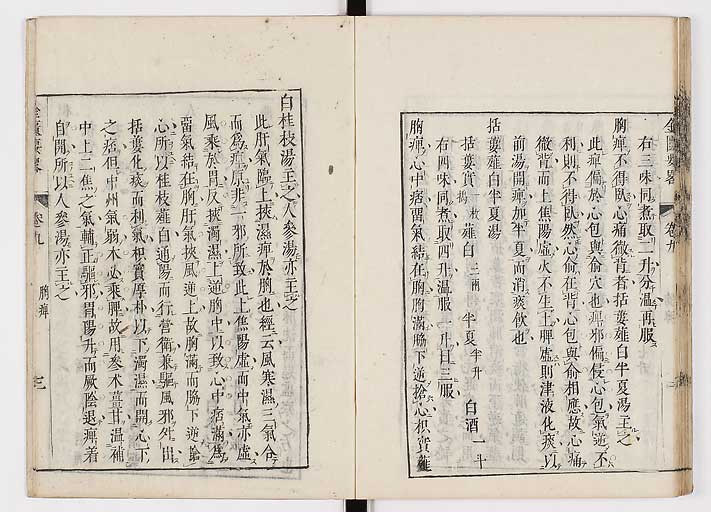 金匱要略 卷九
右三味同煮取二升分溫再服
胸痺不得臥心痛徹背者括蔞薤白半夏湯主之
此痺偏於心包與俞穴也痺邪偏侵心包氣逆不
利則不得臥然心俞在背心包與俞相應故心痛
徹背而上焦陽虛火不生土脾虛則津液化痰以
前湯開痺加半夏而消痰飲也
括蔞薤白半夏湯
括蔞實一枚搗 薤白三兩 半夏半升 白酒一斗
右四味同煮取四升溫服一升日三服
胸痺心中痞留氣結在胸胸滿脇下逆搶心枳實薤
白桂枝湯主之人參湯亦主之
此肝氣臨上挾濕痺於胸也經云風寒濕三氣合
而為痺原非一邪所致此上焦陽虛而中氣亦虛
風乘於胃反挾濁濕上逆胸中以致心中痞滿為
留氣結在胸肝氣挾風逆上故胸滿而脇下逆搶
心所以桂枝薤白通陽而行營衛兼驅風邪外出
括蔞化痰而利氣枳實厚朴以下濁濕而開心下
之痞但中州氣弱木必乘興故用參朮薑甘溫補
中上二焦之氣輔正驅邪胃陽升而厥陰退痺着
自開所以人參湯亦主之
金匱要略 卷九 胸痺